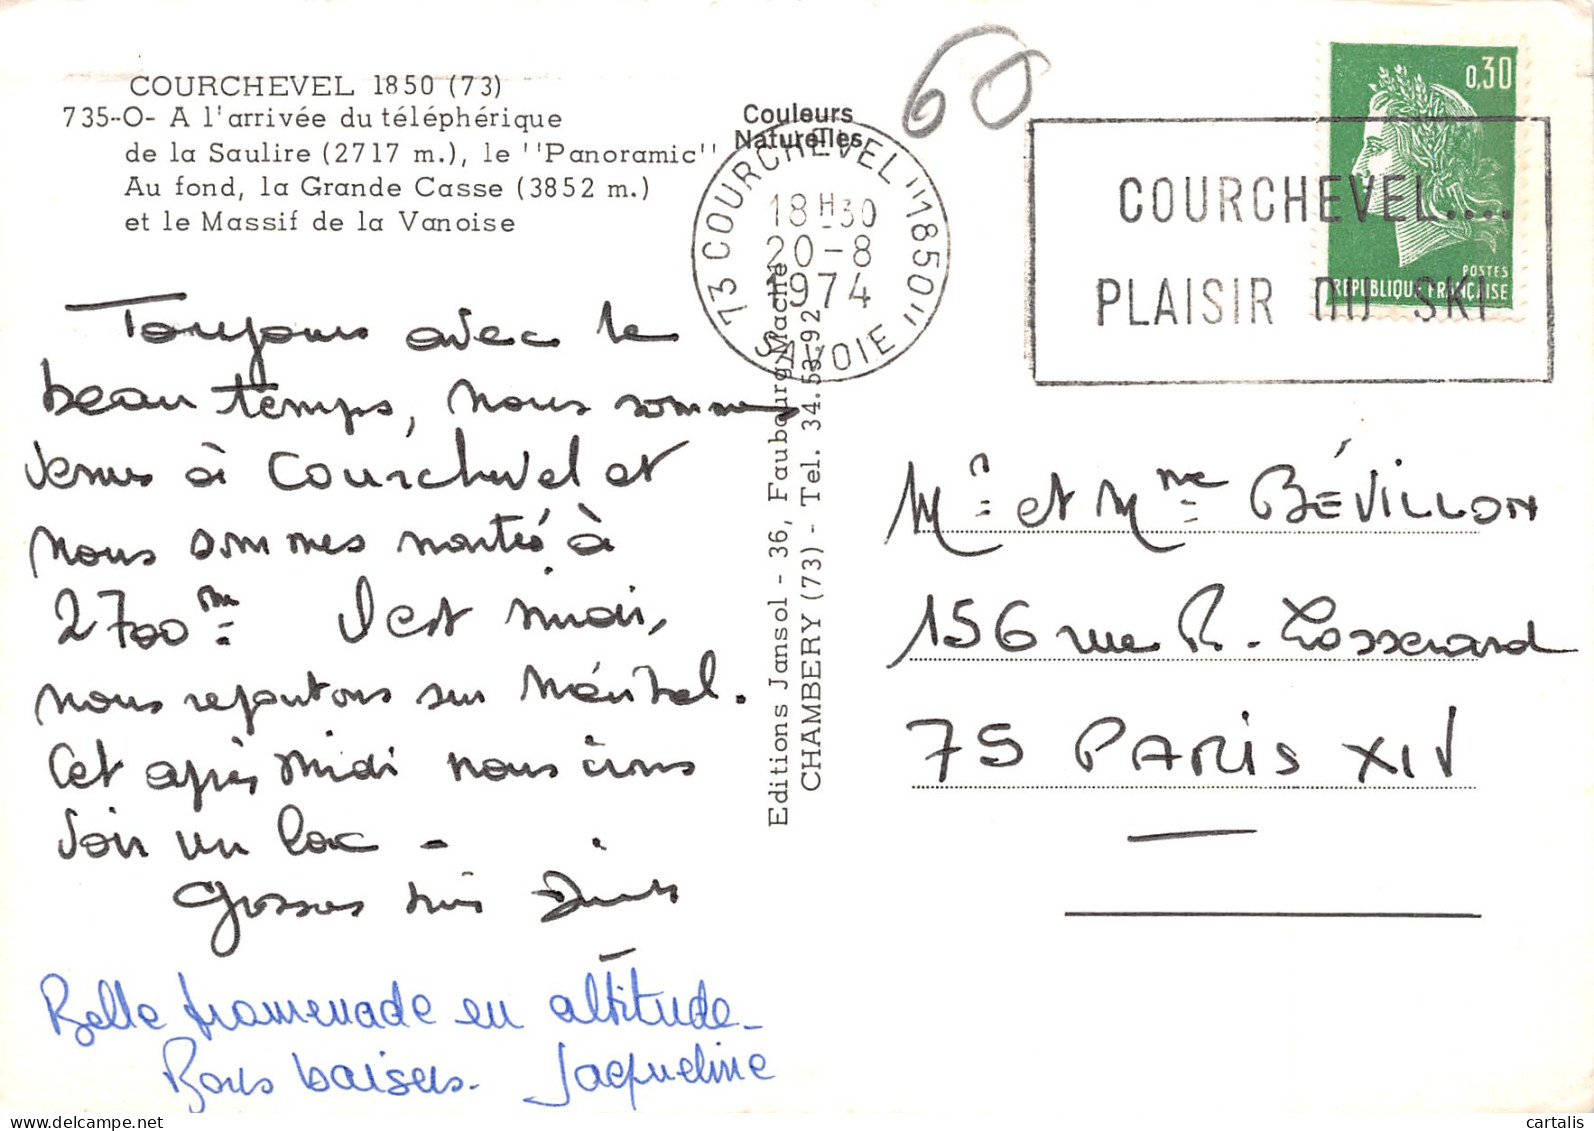 COURCHEVEL 1850 (73)
735-O- A l'arrivée du téléphérique
de la Saulire (2717 m.), le ''Panoramic''
Au fond, la Grande Casse (3852 m.)
et le Massif de la Vanoise
Toujours avec le
beau temps, nous sommes
venus à Courchevel et
nous sommes montés à
2700m Il est midi,
nous repartons sur Méribel.
Cet après midi nous irons
voir un lac -
Grosses bises
Belle promenade en altitude_
Bons baisers. Jacqueline
Couleurs
Naturelles
Editions Jansol - 36, Faubourg Maché
CHAMBERY (73) - Tel. 34.53.92
60
73 COURCHEVEL "1850"
18H30
20-8
1974
SAVOIE
COURCHEVEL....
PLAISIR DU SKI
0,30
POSTES
REPUBLIQUE FRANCAISE
Mr et Mme BÉVILLON
156 rue R. Losserand
75 PARIS XIV
cartalis